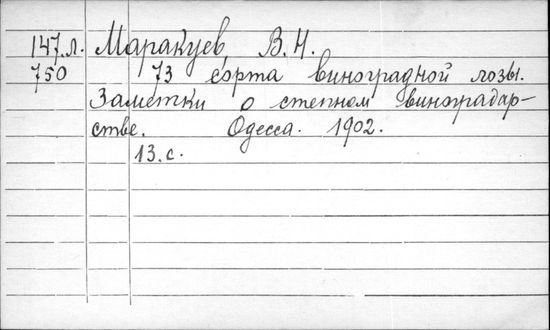 147.л. Маракуев, В.Н.
750 73 сорта виноградной лозы.
Заметки о степном виноградар-
стве. Одесса. 1902.
13.с.